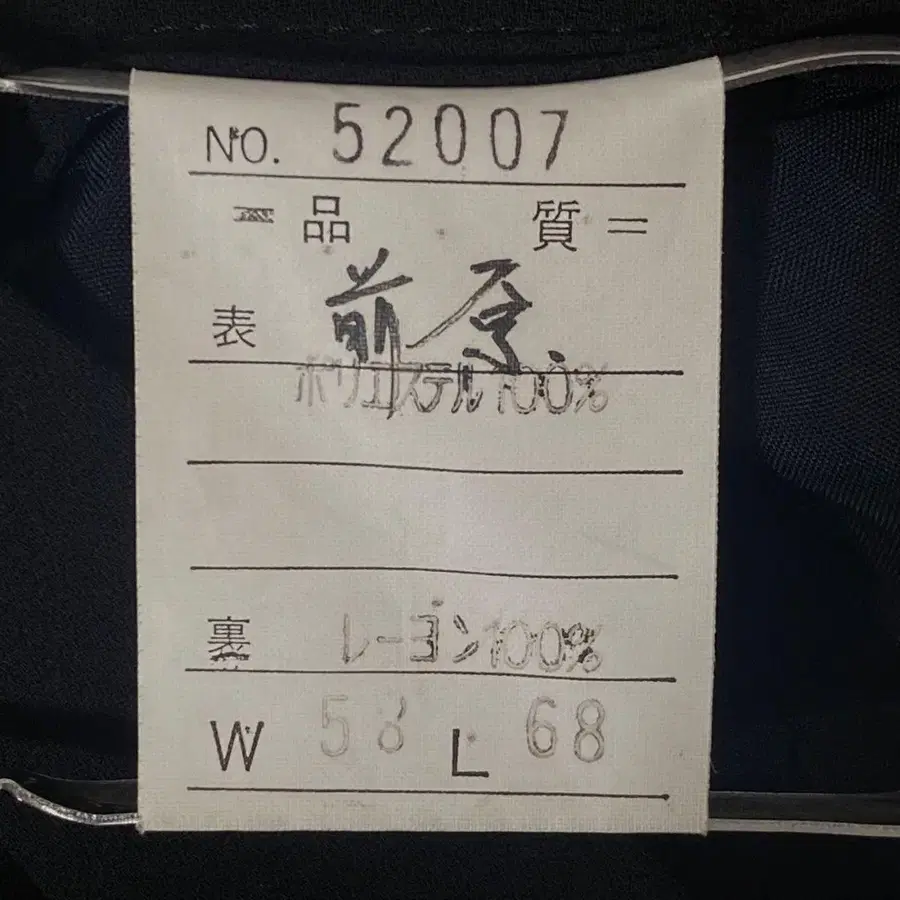 NO. 52007
=品 質=
表 前原
ポリエステル100%
裏 レーヨン100%
W 58 L 68